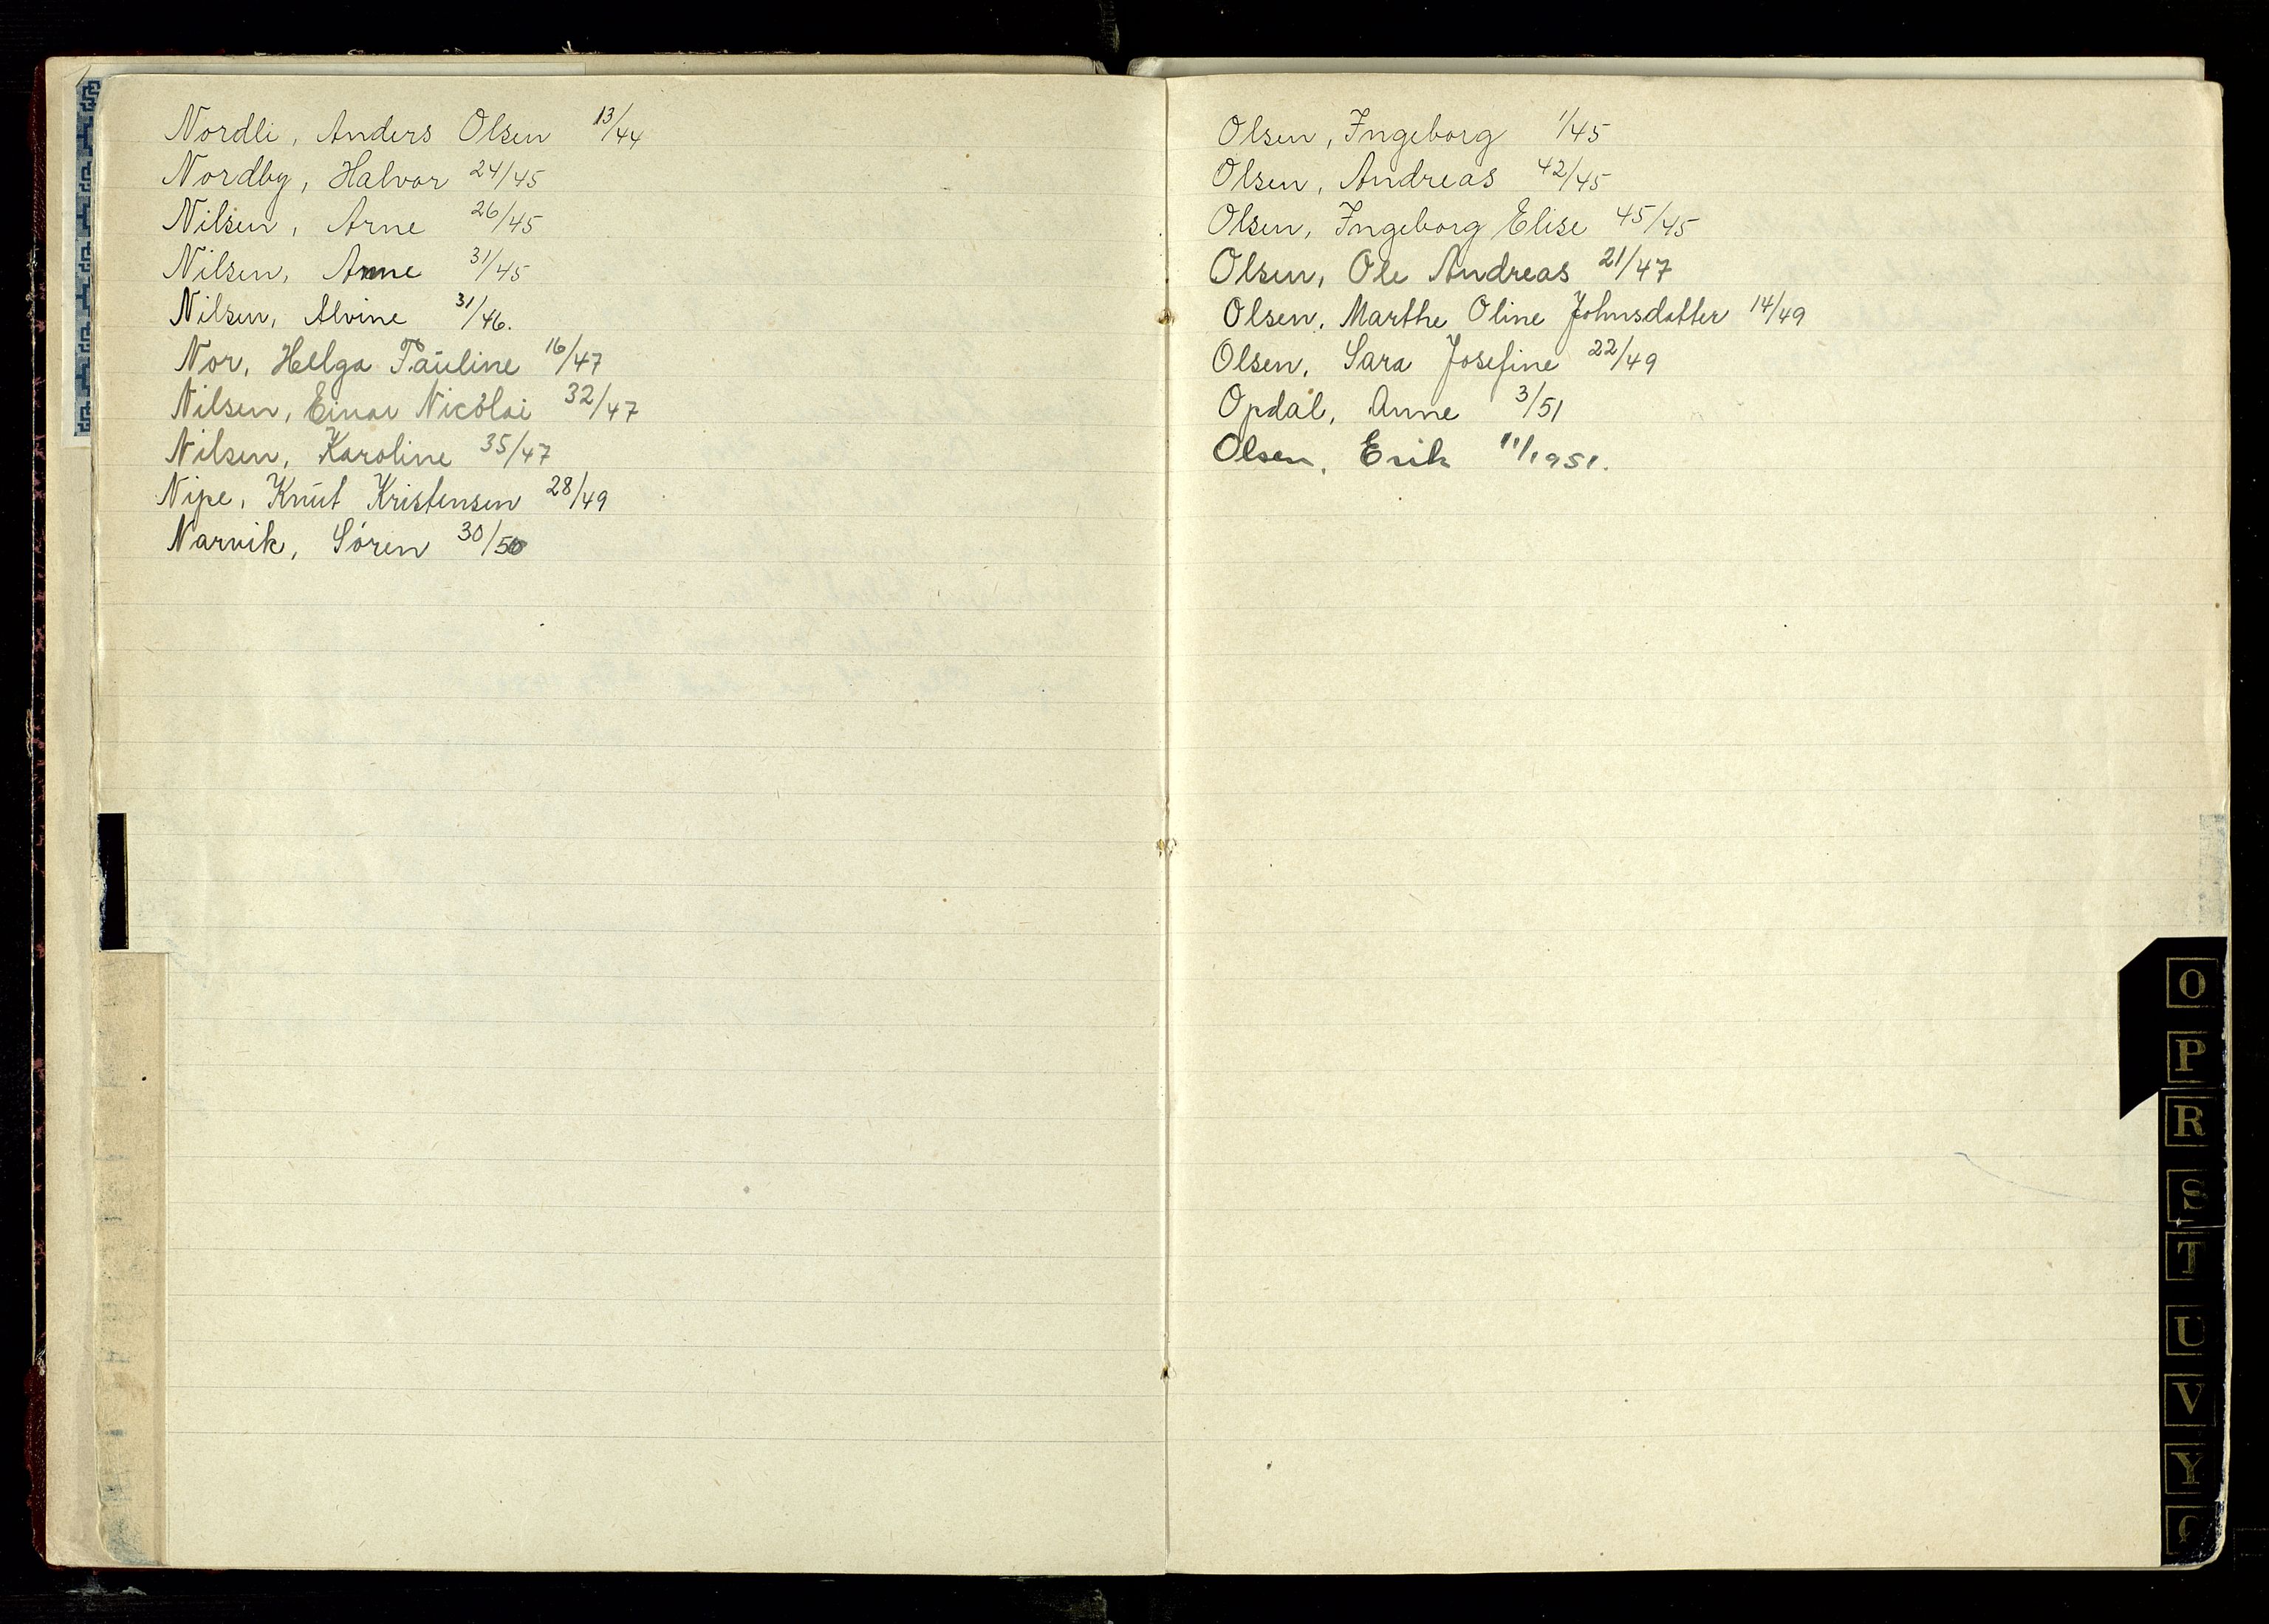 Nordli, Anders Olsen 13/44
Nordby, Halvor 24/45
Nilsen, Arne 26/45
Nilsen, Anne 31/45
Nilsen, Alvine 31/46.
Nor, Helga Pauline 16/47
Nilsen, Einar Nicolai 32/47
Nilsen, Karoline 35/47
Nipe, Knut Kristensen 28/49
Narvik, Sören 30/50
Olsen, Ingeborg 1/45
Olsen, Andreas 42/45
Olsen, Ingeborg Elise 45/45
Olsen, Ole Andreas 21/47
Olsen, Marthe Oline Johnsdatter 14/49
Olsen, Sara Josefine 22/49
Opdal, Anne 3/51
Olsen, Erik 11/1951.
O
P
R
S
T
U
V
Y